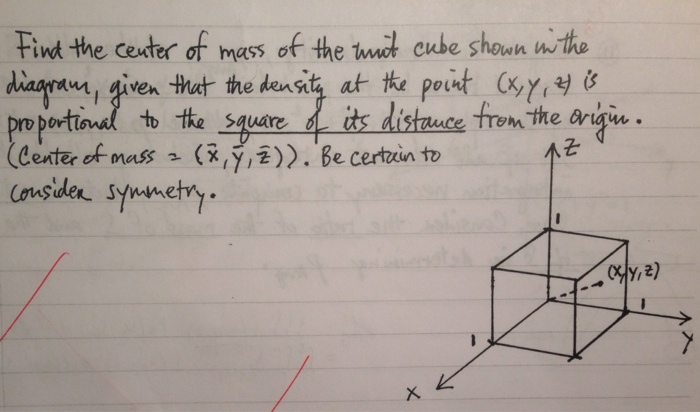 Find the center of mass of the unit cube shown in the
diagram, given that the density at the point (x, y, z) is
proportional to the square of its distance from the origin.
(Center of mass = (x̄, ȳ, z̄)). Be certain to
consider symmetry.
Z
1
(x, y, z)
1
1
Y
X